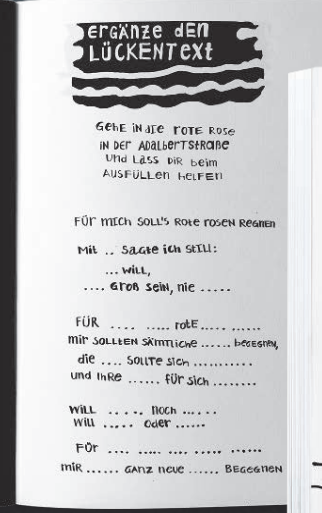 ergänze den
LÜCKENTEXT
GEHE IN DIE ROTE ROSE
IN DER ADALBERTSTRAßE
UND LASS DIR BEIM
AUSFÜLLEN HELFEN
FÜR MICH SOLL'S ROTE ROSEN REGNEN
MIT .. SAGTE ICH STILL:
... WILL,
.... GROß SEIN, NIE .....
FÜR .... ..... ROTE ..... ......
MIR SOLLTEN SÄMTLICHE ...... BEGEGNEN,
DIE .... SOLLTE SICH ...........
UND IHRE ...... FÜR SICH ........
WILL ..... NOCH ......
WILL ..... ODER ......
FÜR .... .... .... ..... ......
MIR ...... GANZ NEUE ...... BEGEGNEN